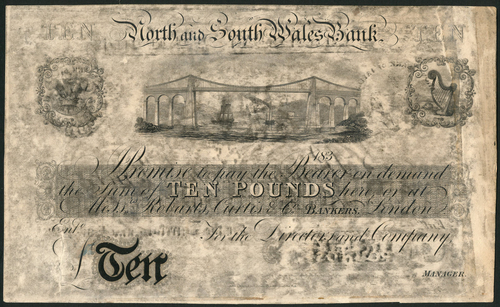 TEN North and South Wales Bank. TEN
183
I Promise to pay the Bearer on demand
the Sum of TEN POUNDS here or at
Mess.rs Robarts, Curtis & Co. BANKERS, London
Ent.d For the Directors and Company
£ Ten
MANAGER.